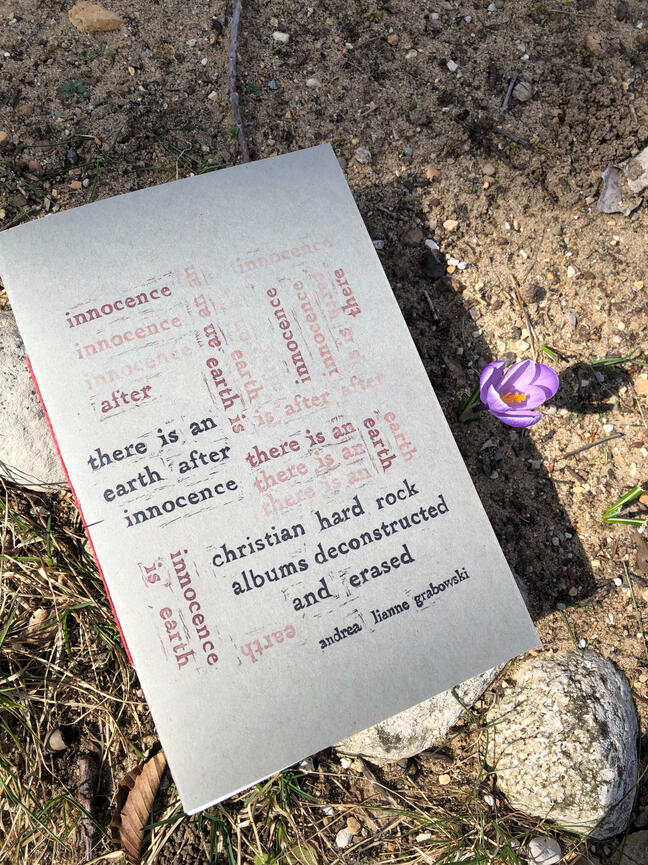 innocence
innocence
innocence
after
an an an earth is
earth
innocence
innocence
innocence
there is
is after after
there is an
earth after
innocence
there is an
there is an
there is an
earth
earth
christian hard rock
albums deconstructed
and erased
andrea lianne grabowski
innocence
is earth
earth